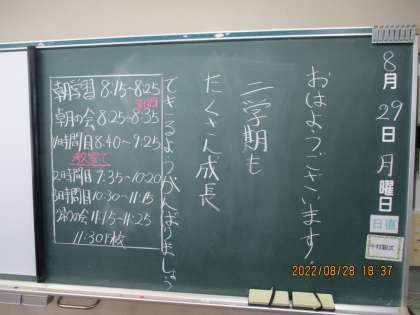 8月29日月曜日
日直
おはようございます。
二学期も
たくさん成長
できるようがんばりましょう
朝学習 8:15~8:25
朝の会 8:25~8:35
1時間目 8:40~9:25
2時間目 9:35~10:20
3時間目 10:30~11:15
帰りの会 11:15~11:25
11:30下校
2022/08/28 18:37